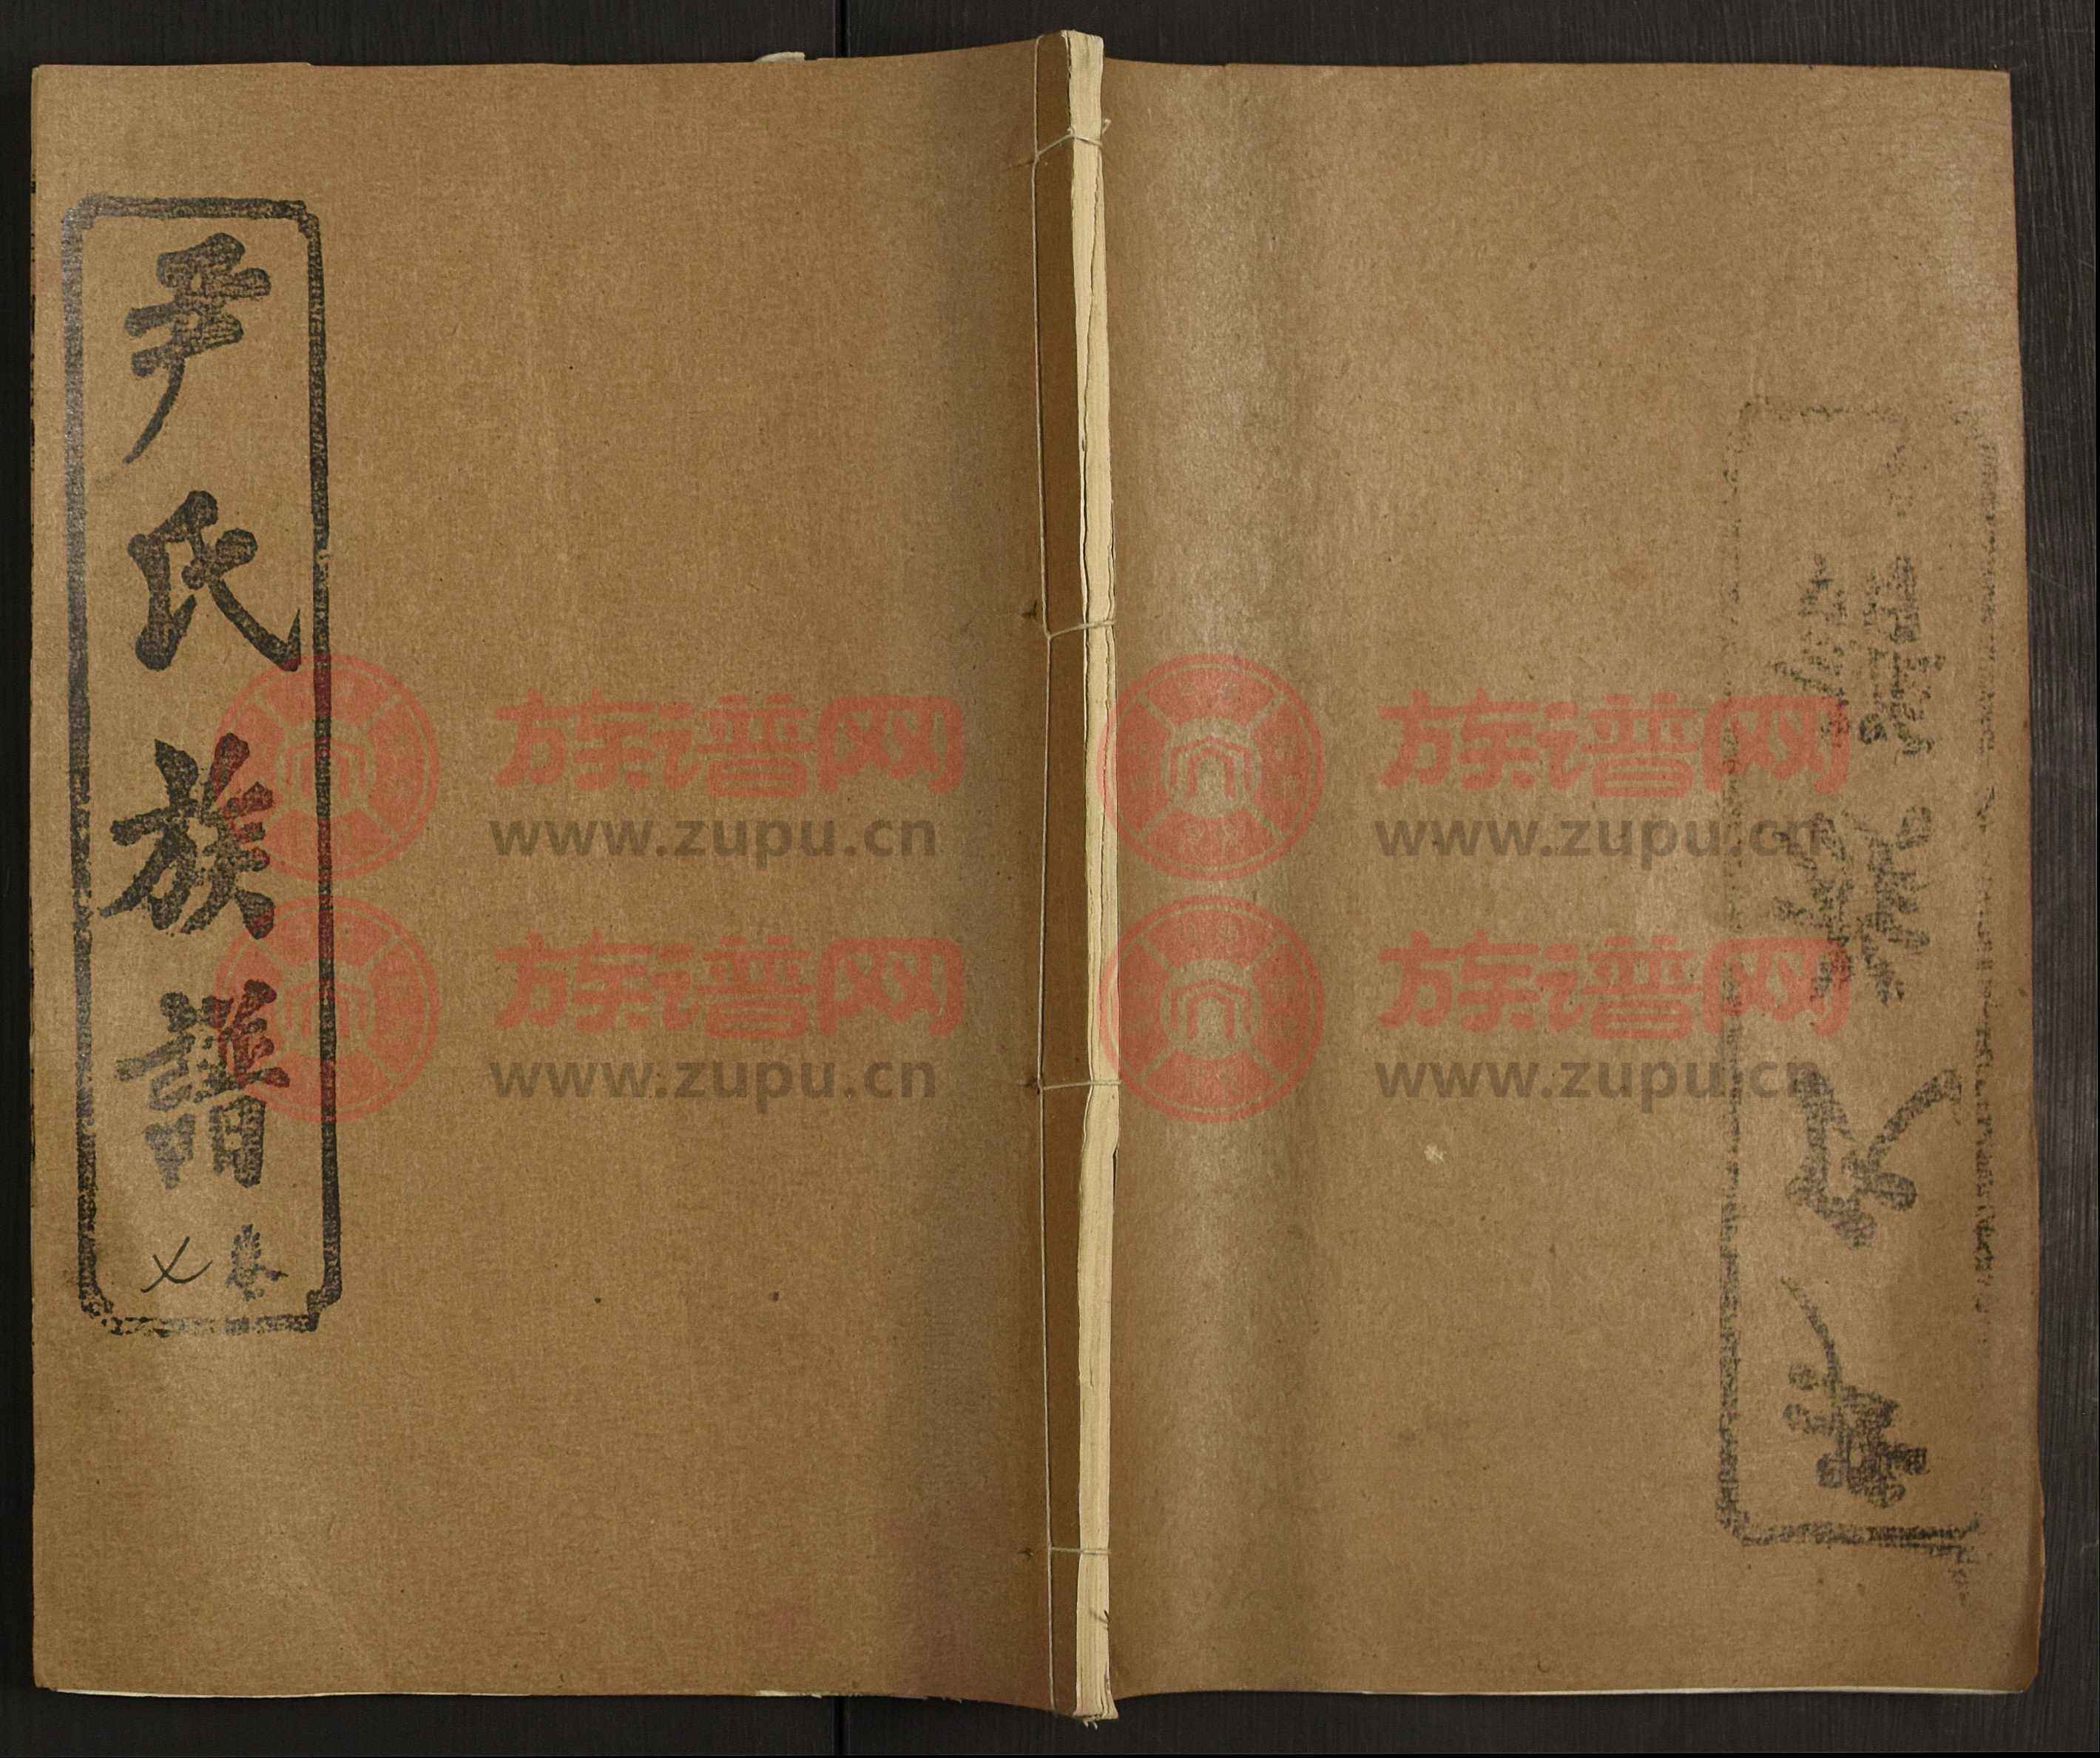 尹氏族譜
卷
㐅
族谱网
www.zupu.cn
族谱网
www.zupu.cn
族谱网
www.zupu.cn
族谱网
www.zupu.cn
尹氏族譜